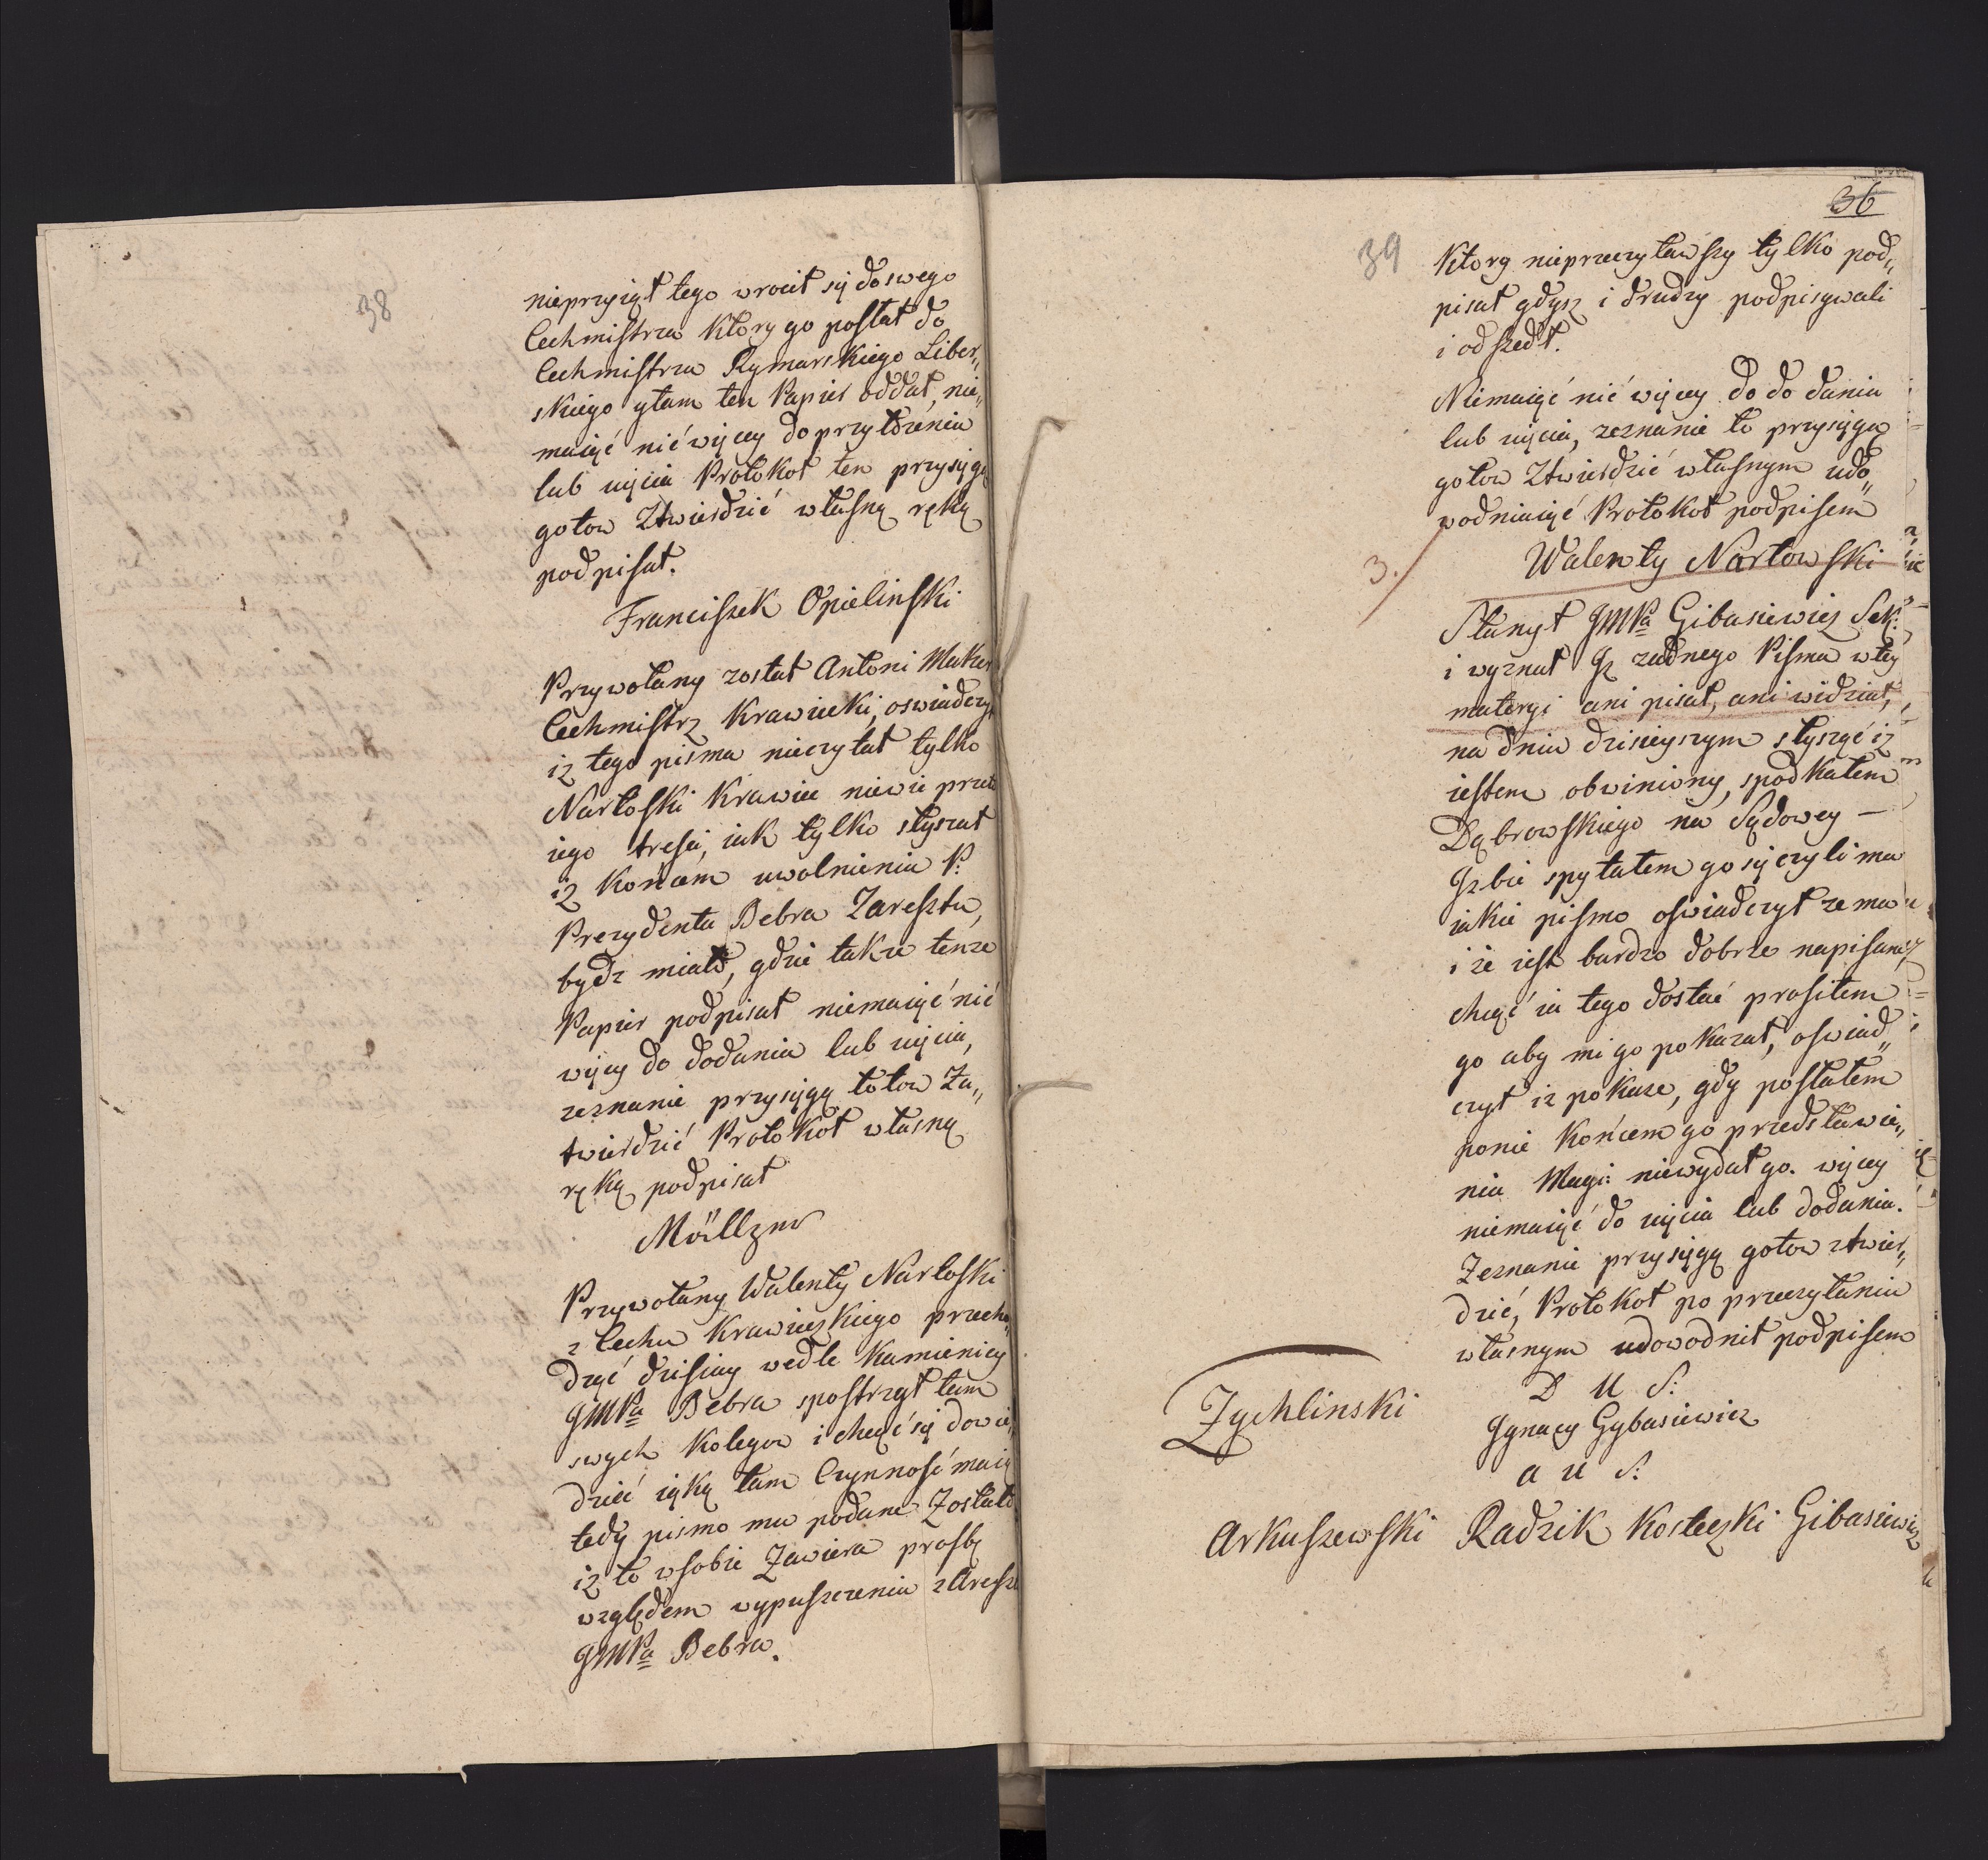 38
nieprzyiął tego wrocił się do swego
Cechmistrza Ktory go posłał do
Cechmistrza Rymarskiego Liber„
skiego y tam ten Papier oddał, nie„
maiąć nić więcey do przyłożenia
lub uięcia Protokoł ten przysięgą
gotow Ztwierdzić własną ręką
podpisał.
Franciszek Opielinski
Przywołany został Antoni
Cechmistrz Krawiecki, oswiadczył
iż tego pisma nieczytał tylko
Nartoski Krawiec niewie przeto
iego tresci, iak tylko słyszał
iż Końcem uwolnienia P:
Prezydenta Bebra Zaresztu,
bydz miało, gdzie takze tenze
Papier podpisał niemaiąć nić
więcy do dodania lub uięcia,
zeznanie przysięgą totow Za„
twierdzić Protokoł własną
ręką podpisał
Przywołany Walenty Nartoski
z Cechu Krawieckiego przecho„
dząć dzisiay wedle Kamienicy
JMPa Bebra spostrzgł tam
swych Kolegow i chcąć się dowie„
dzieć iąką tam Czynność maią
tedy pismo mu podane Zostało
iż to wsobie Zawiera prosbę
względem wypuszczenia zAreszt
JMPa Bebra.
36
39
Ktorą nieprzeczytawszy tylko pod„
pisał gdysz i drudzy podpisywali
i odszedł.
Niemaiąć nić więcey do do dania
lub uięcia, zeznanie to przysięgą
gotow Ztwierdzić własnym udo„
wodniaiąć Protokoł podpisem
Walenty Nartowski
3.
Stanął JMPa Gibasiewicz Sek:
i wyznał Jz zadnego Pisma wtey
materyi ani pisał, ani widział,
na dniu dzisieyszym słysząć iz
iestem obwiniony, spodkałem
Dąbrowskiego na Sądowey –
Jzbie spytałem go się czyli ma
iakie pismo oswiadczył ze ma
i ze iest bardzo dobrze napisane,
chcąć ia tego dostać prosiłem
go aby mi go pokazał, oswiad„
czył iz pokaze, gdy posłałem
ponie Końcem go przedstawie„
nia Magi: niewydał go. więcey
niemaiąć do uięcia lub dodania.
Zeznanie przysięgą gotow ztwier„
dzić, Protokoł po przeczytaniu
własnym udowodnił podpisem
D U S:
Zychlinski
Jgnacy Gybasiewicz
a u S:
Arkuszewski Radzik Kosteczki Gibasiewicz